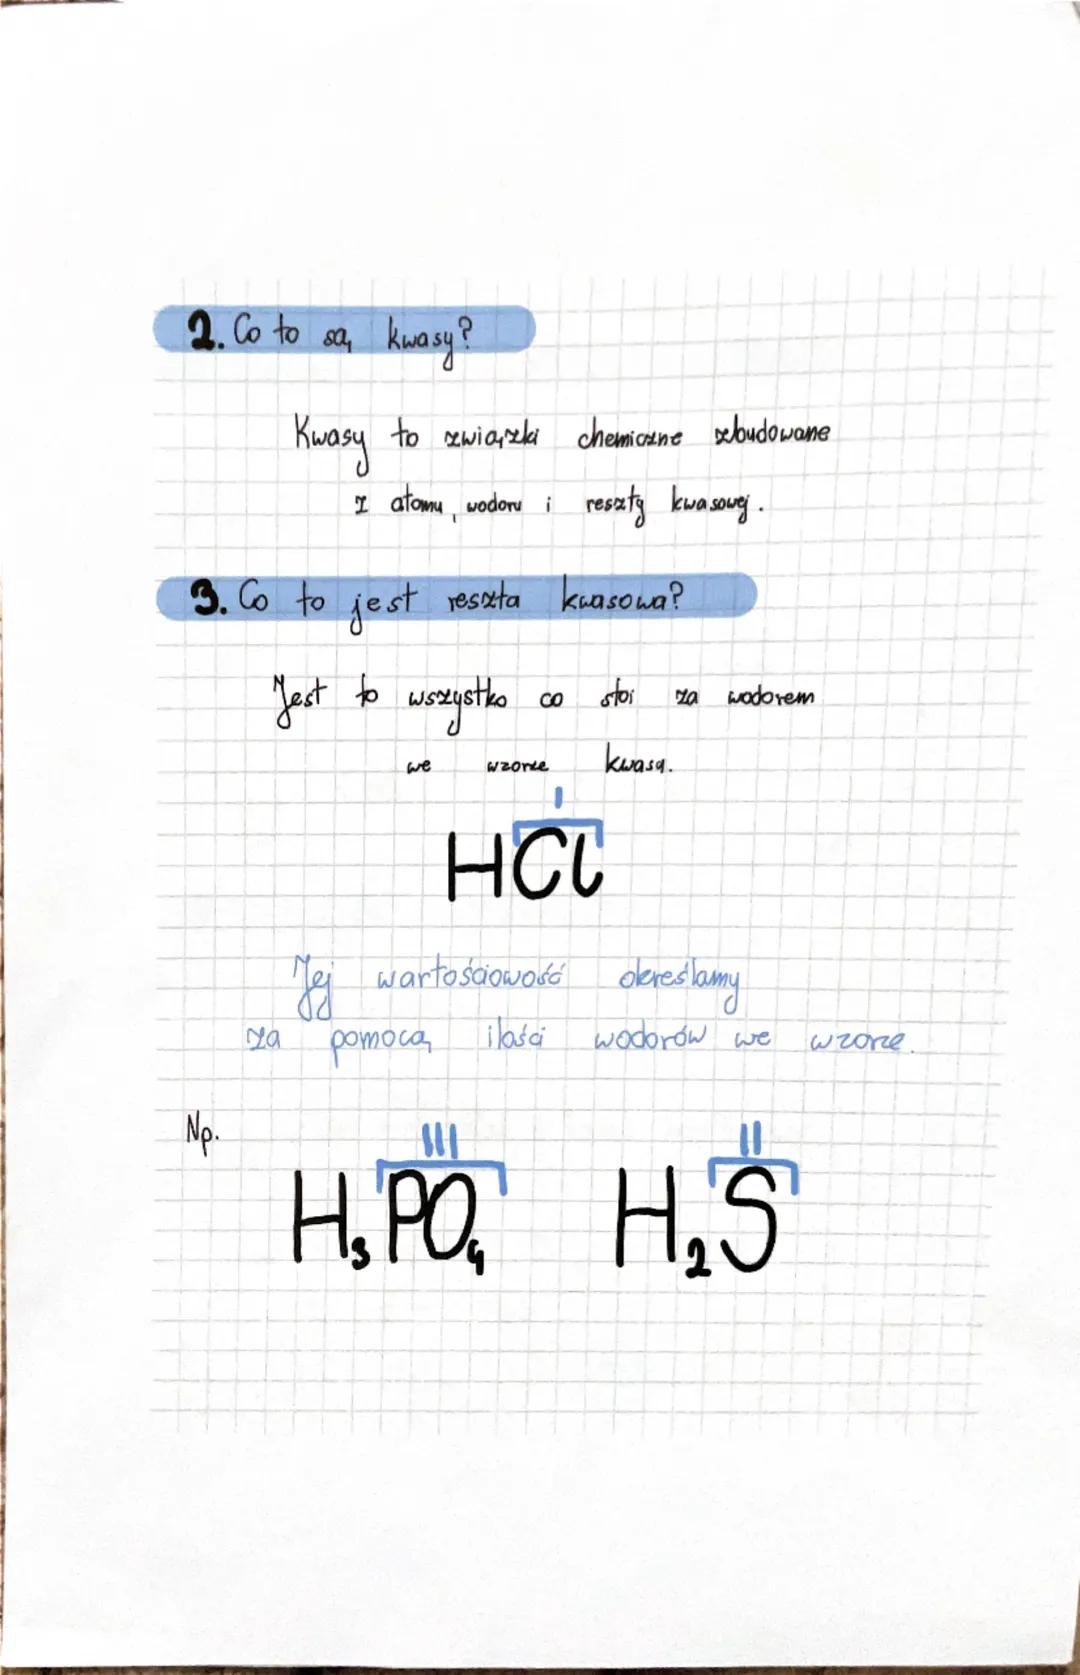 2. Co to są kwasy?
Kwasy to związki chemiczne zbudowane
z atomu wodoru i reszty kwasowej.
3. Co to jest reszta kwasowa?
Jest to wszystko co stoi za wodorem
we wzorze kwasu.
I
HCl
Jej wartościowość określamy
za pomocą ilości wodorów we wzorze.
Np.
III II
H₃PO₄ H₂S